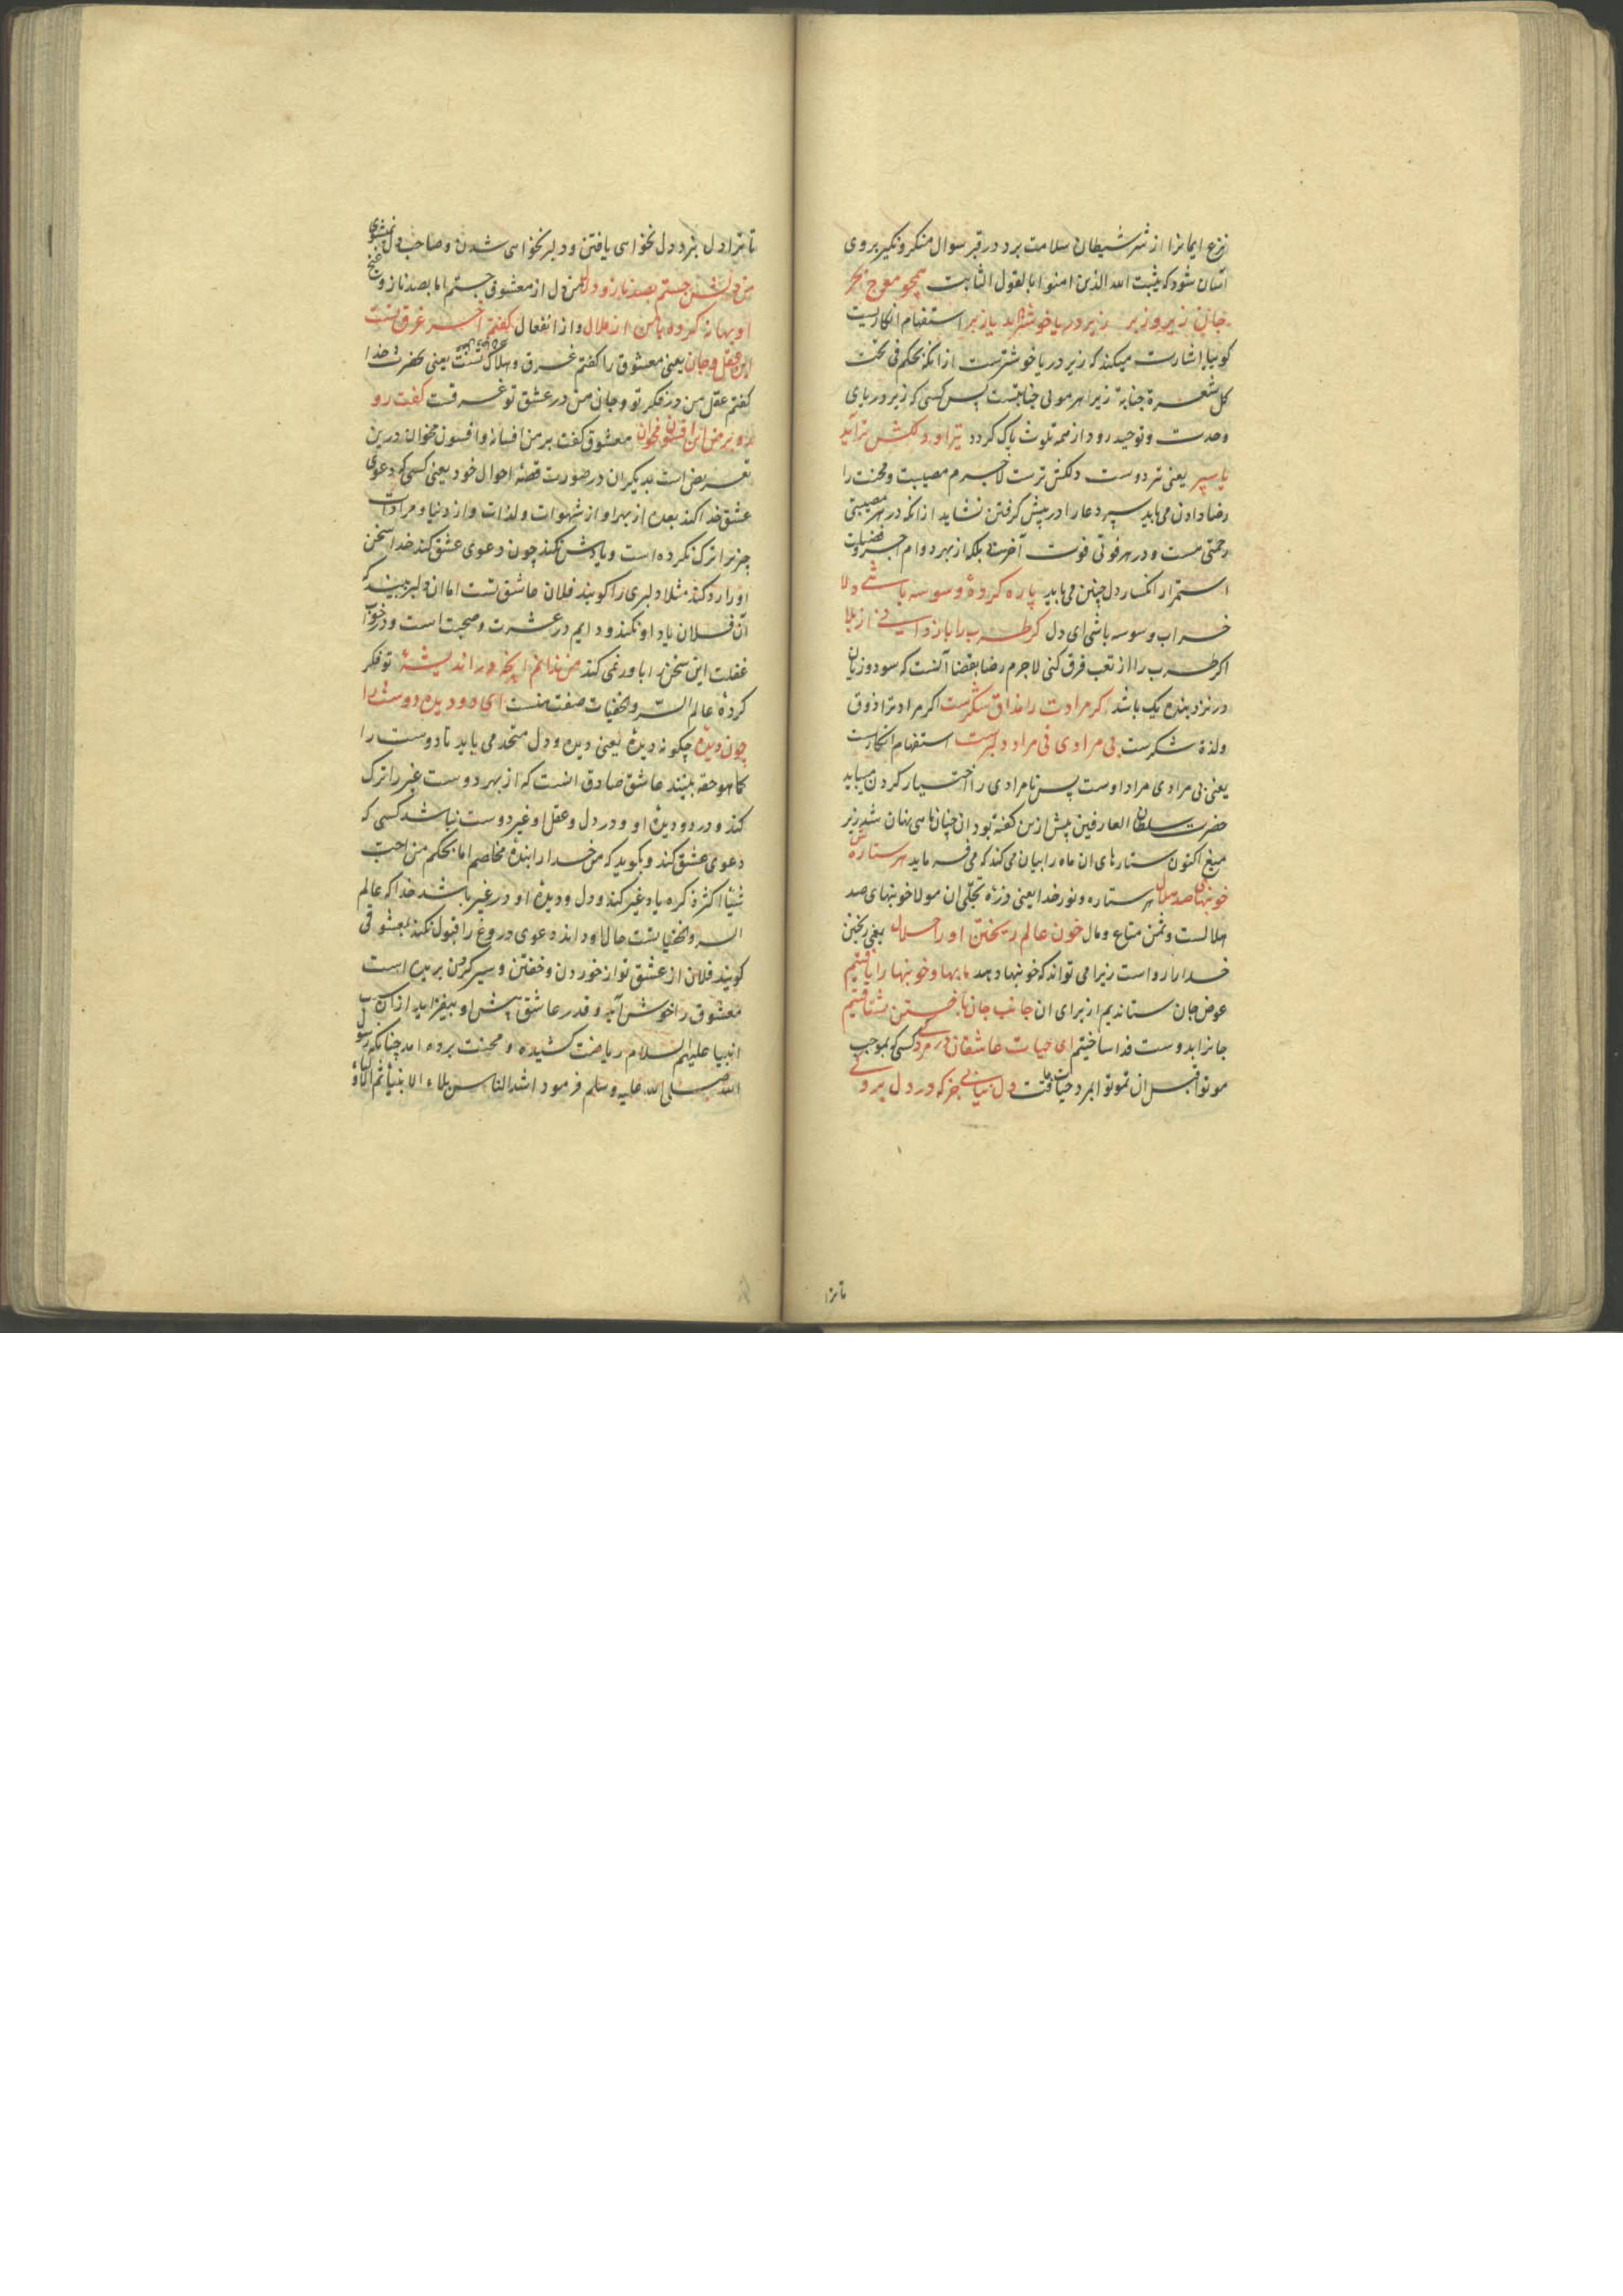 نزع ایمانرا از شر شیطان سلامت برد در قبر سوال منکر و نکیر بروی
آسان شود که یثبت الله الذین امنوا بالقول الثابت همچو موج بحر
جان زیر و زبر زیر دریا خوشتر آید یا زبر استفهام انکاریست
کوییا اشارت میکند که زیر دریا خوشترست از انکه بحکم فی تحت
کل شعرة جنابة زیر هر مویی جنابتست پس کسی که زیر دریای
وحدت و توحید رود از همه تلوث پاک کردد تیر او دلکش تر آید
یا سپر یعنی تیر دوست دلکش ترست لا جرم مصیبت و محنت را
رضا دادن می باید سپر دعا را در پیش کرفتن نشاید از انکه در هر مصیبتی
رحمتی هست و در هر فوتی فوت آخرت بلکه از بهر دوام اجر و فضیلت
استمرار انکسار دل چنین می باید پاره کردهٔ وسوسه باشی دلا
خراب وسوسه باشی ای دل کر طرب را باز دانی از بلا
اکر طرب را از تعب فرق کنی لا جرم رضا بقضا آنست که سود و زیان
در نزد بنده یک باشد کر مرادت را مذاق شکرست اکر مراد ترا ذوق
ولذة شکرست بی مرادی نی مراد دلبرست استفهام انکاریست
یعنی بی مرادی مراد اوست پس نامرادی را اختیار کردن میباید
حضرت سلطان العارفین پیش ازین کفته بود ان چنان ماهی نهان شد زیر
میغ اکنون ستارهای ان ماه را بیان می کند که می فرماید هر ستاره ش
خونبهای صد هلال هر ستاره و نور خدا یعنی ذره تجلی ان مولا خونبهای صد
هلالست و ثمن متاع و مال خون عالم ریختن او را حلال یعنی ریختن
خدا را رواست زیرا می تواند که خونبها دهد ما بها و خونبها را یافتیم
عوض جان ستاندیم از برای ان جانب جان باختن بشتافتیم
جانرا بدوست فدا ساختیم ای حیات عاشقان در مردکی کسی که بموجب
موتوا قبل ان تموتوا بمرد حیات یافت دل نیابی جز که در دل بردکی
تا ترا
تا ترا دل نبرد دل نخواهی یافتن و دلبر نخواهی شدن و صاحب دل نشوی
من دلش جستم بصد ناز و دلال من دل از معشوق جستم اما بصد ناز و غنج
او بهانه کرده با من از ملال و از انفعال کفتم آخر غرق تست
این عقل و جان یعنی معشوق را کفتم غرق و هلاک تست یعنی حضرت خدا
کفتم عقل من در فکر تو و جان من در عشق تو غرقست کفت رو
رو بر من این افسون مخوان معشوق کفت بر من افسانه و افسون مخوان درین
تعریض است بدیکران در صورت قصه احوال خود یعنی کسی که دعوی
عشق خدا کند بعده از بهر او از شهوات و لذات و از دنیا و مرادات
چیزیرا ترک نکرده است و یادش نکند چون دعوی عشق کند خدا سخن
او را رد کند مثلا دلبری را کویند فلان عاشق تست اما ان دلبر بیند که
آن فلان یاد او نکند و دایم در عشرت و صحبت است و در خواب
غفلت این سخن را باور نمی کند من ندانم آنچه در اندیشهٔ تو فکر
کردهٔ عالم السر و الخفیات صفت منست ای دو دیده دوست را
چون دیدهٔ چکونه دیدهٔ یعنی دیده و دل متحد می باید تا دوست را
کما هو حقه بیند عاشق صادق انست که از بهر دوست غیر را ترک
کند و در دو دیدهٔ او و در دل و عقل او غیر دوست نباشد کسی که
دعوی عشق کند و بکوید که من خدا را بندهٔ مخلصم اما بحکم من احب
شیئا اکثر ذکره یاد غیر کند و دل و دیدهٔ او در غیر باشد خدا که عالم
السر و الخفیاتست حال او داند دعوی دروغ را قبول نکند بمعشوقی
کویند فلان از عشق تو از خوردن و خفتن و سیر کردن بریده است
معشوق را خوش آید و قدر عاشق پیش او بیفزاید از ان سبب
انبیا علیهم السلام ریاضت کشیده و محنت برده اند چنانکه رسول
الله صلی الله علیه و سلم فرمود اشد الناس بلاء الانبیاء ثم الاولیاء